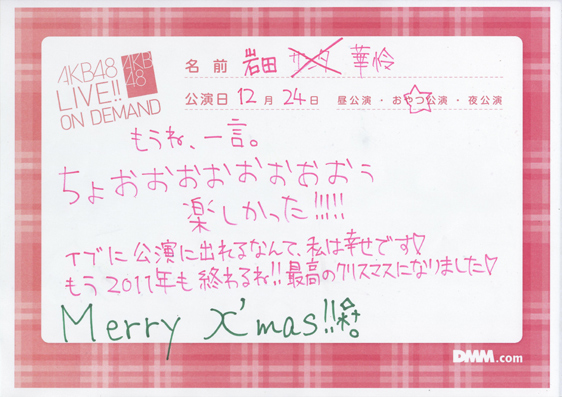 AKB48
LIVE!!
ON DEMAND
AKB
48
名前 岩田 サンタ 華怜
公演日 12月 24日 昼公演・おやつ公演・夜公演
もうね、一言。
ちょおおおおおおおおぅ
楽しかった!!!!!
イブに公演に出れるなんて、私は幸せです♡
もう2011年も終わるね!!最高のクリスマスになりました♡
Merry X'mas!!
DMM.com